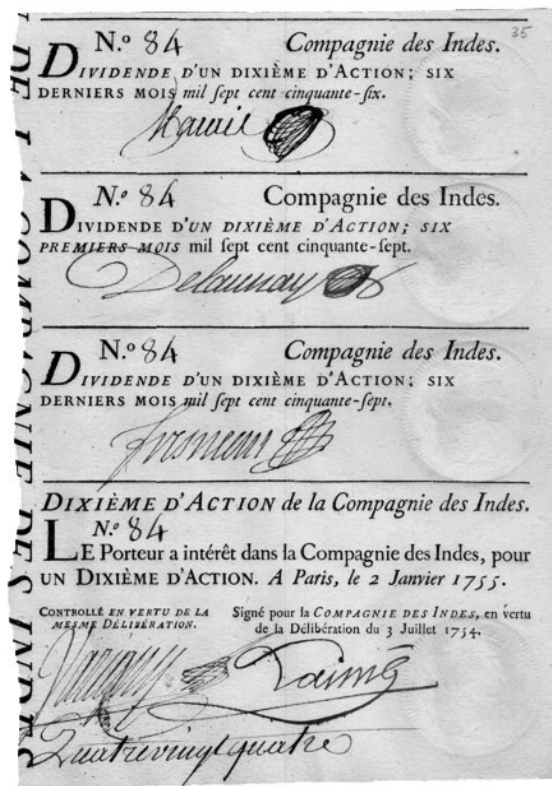 35
N.o 84 Compagnie des Indes.
DIVIDENDE D'UN DIXIÈME D'ACTION; SIX
DERNIERS MOIS mil sept cent cinquante-six.
N.o 84 Compagnie des Indes.
DIVIDENDE D'UN DIXIÈME D'ACTION; SIX
PREMIERS MOIS mil sept cent cinquante-sept.
Delaunay
N.o 84 Compagnie des Indes.
DIVIDENDE D'UN DIXIÈME D'ACTION; SIX
DERNIERS MOIS mil sept cent cinquante-sept.
DIXIÈME D'ACTION de la Compagnie des Indes.
N.o 84
LE Porteur a intérêt dans la Compagnie des Indes, pour
UN DIXIÈME D'ACTION. A Paris, le 2 Janvier 1755.
CONTROLLÉ EN VERTU DE LA
MESME DÉLIBÉRATION.
Signé pour la COMPAGNIE DES INDES, en vertu
de la Délibération du 3 Juillet 1754.
Quatrevingt quatre
DE LA COMPAGNIE DES INDES